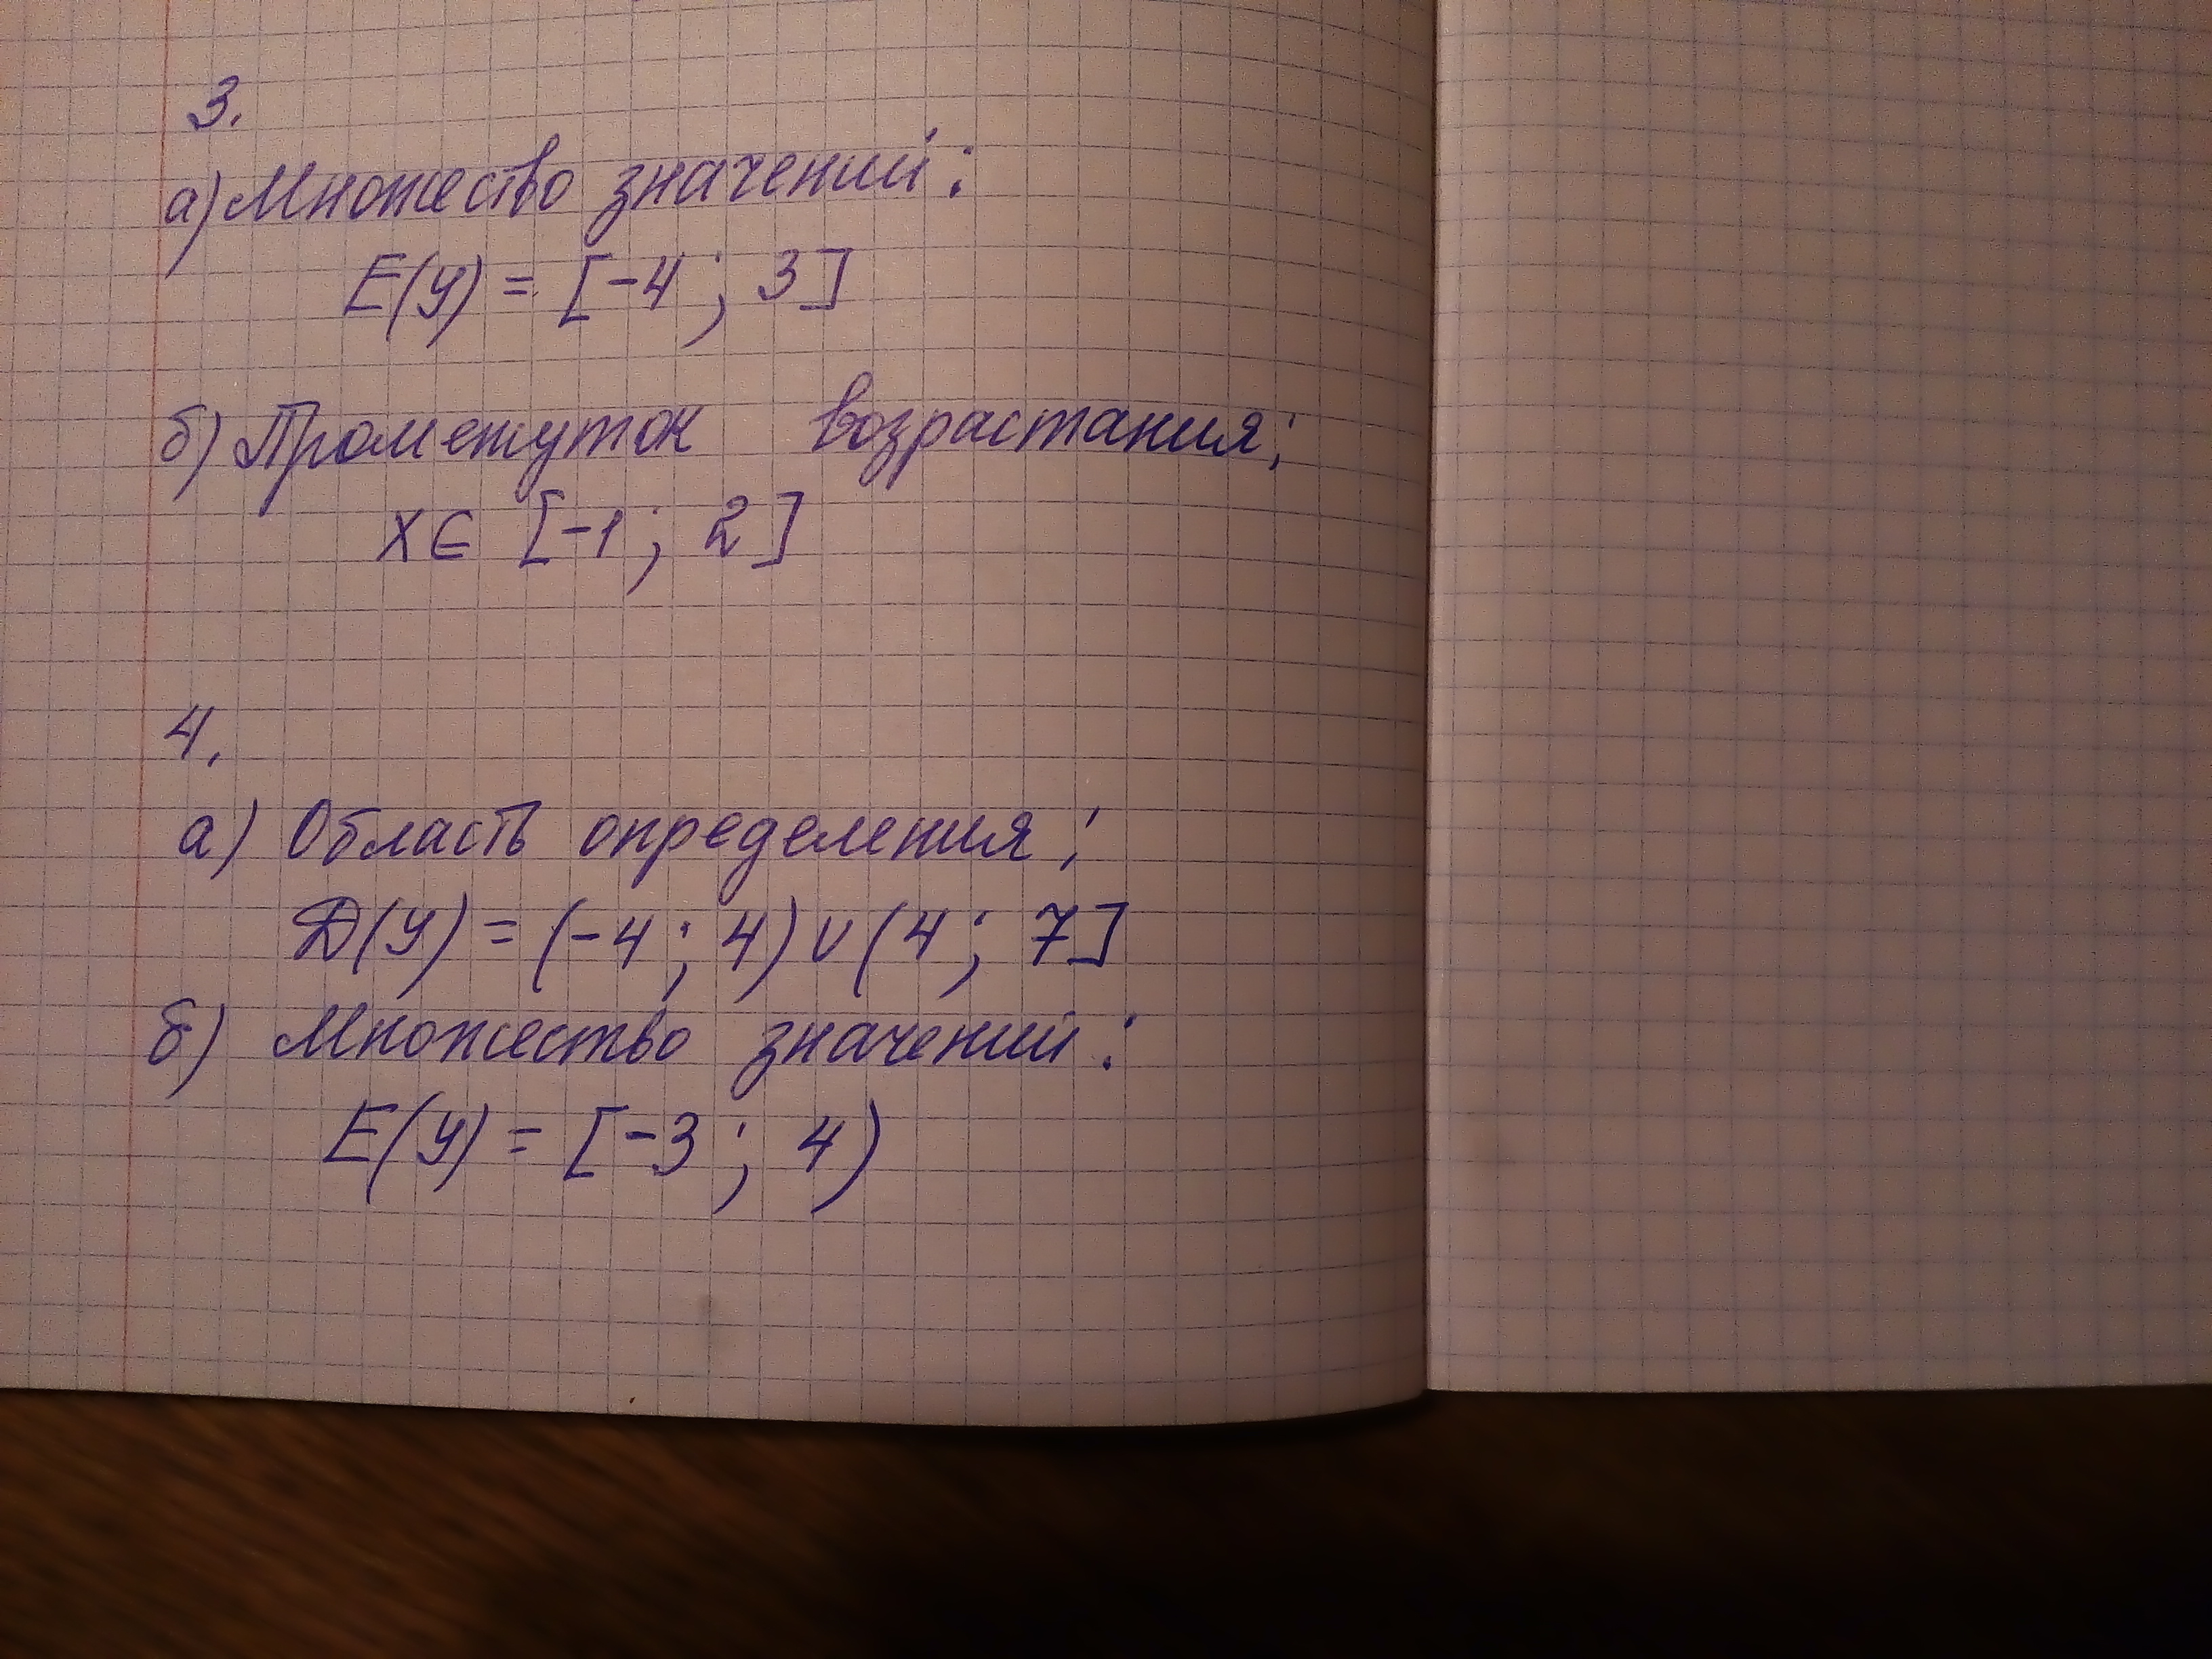 3.
а) Множество значений:
E(y) = [-4; 3]
б) Промежуток возрастания:
x∈ [-1; 2]
4.
а) Область определения:
D(y) = (-4; 4)∪(4; 7]
б) Множество значений:
E(y) = [-3; 4)